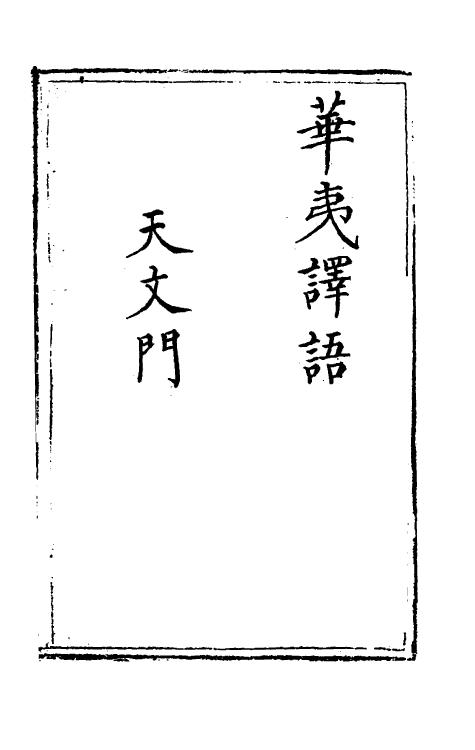 華夷譯語
天文門